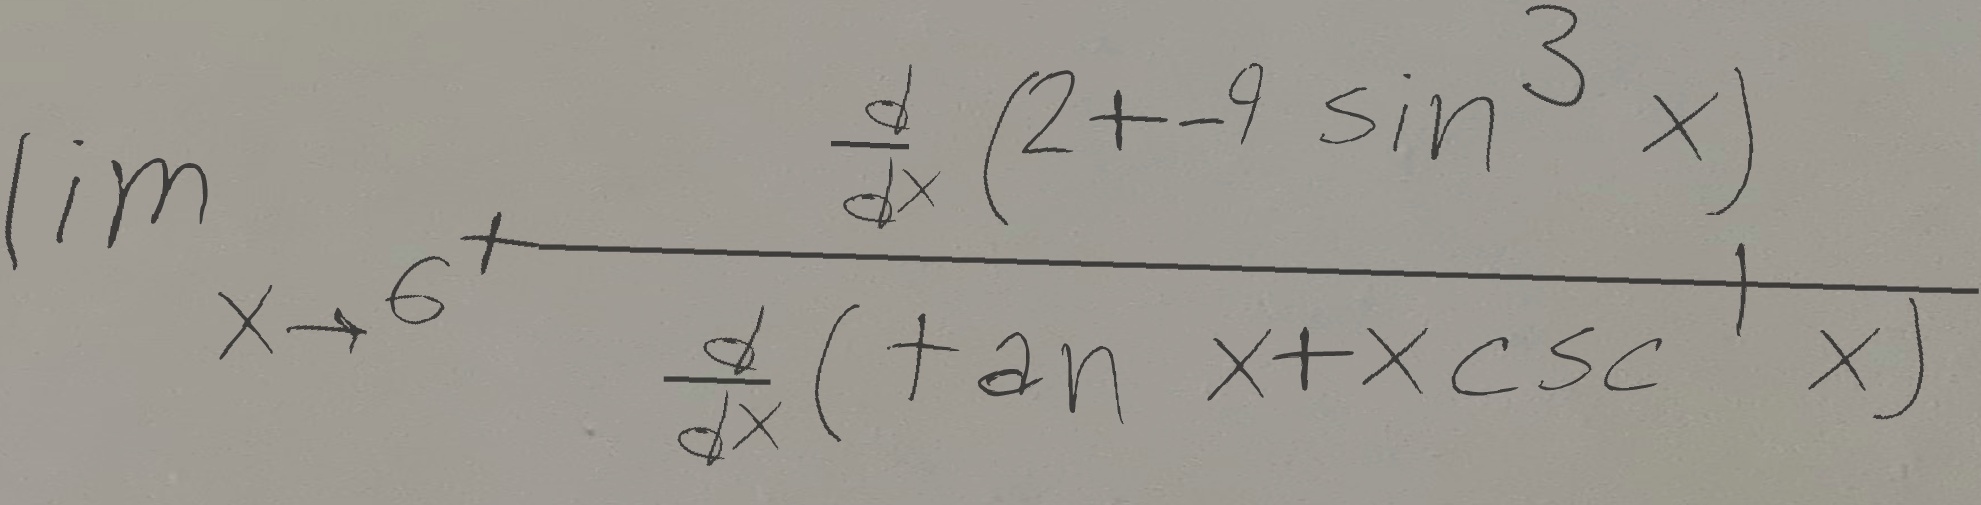 \lim_{x \to 6^+} \frac{\frac{d}{dx}(2+-9\sin^3 x)}{\frac{d}{dx}(\tan x+x\csc^1 x)}